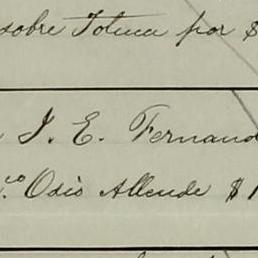 sobre Toluca por $
J. E. Fernand
co Odis Allende $1